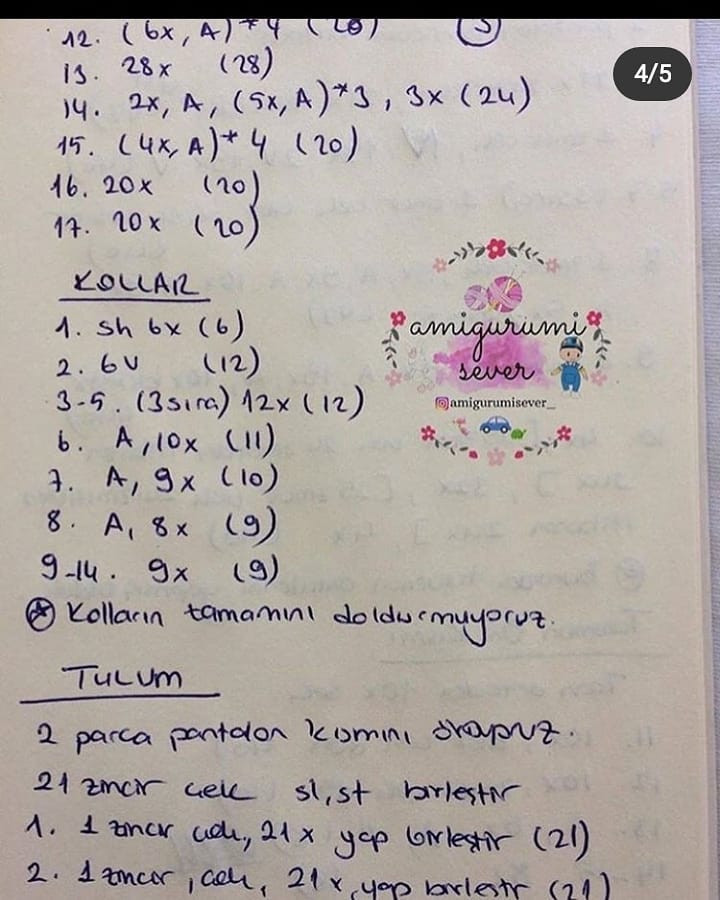 12. (6x, A)*4 (28)
4/5
13. 28x (28)
14. 2x, A, (5x, A)*3, 3x (24)
15. (4x, A)* 4 (20)
16. 20x (20)
17. 20x (20)
KOLLAR
1. sh 6x (6)
2. 6V (12)
3-5. (3sıra) 12x (12)
6. A, 10x (11)
7. A, 9x (10)
8. A, 8x (9)
9-14. 9x (9)
Kolların tamamını doldurmuyoruz.
amigurumi
sever
@amigurumisever_
TULUM
2 parca pantolon kısmını örüyoruz.
21 zincir cek sl,st birleştir
1. 1 zincir cek, 21x yap birleştir (21)
2. 1 zincir, cek, 21x, yap birlestir (21)